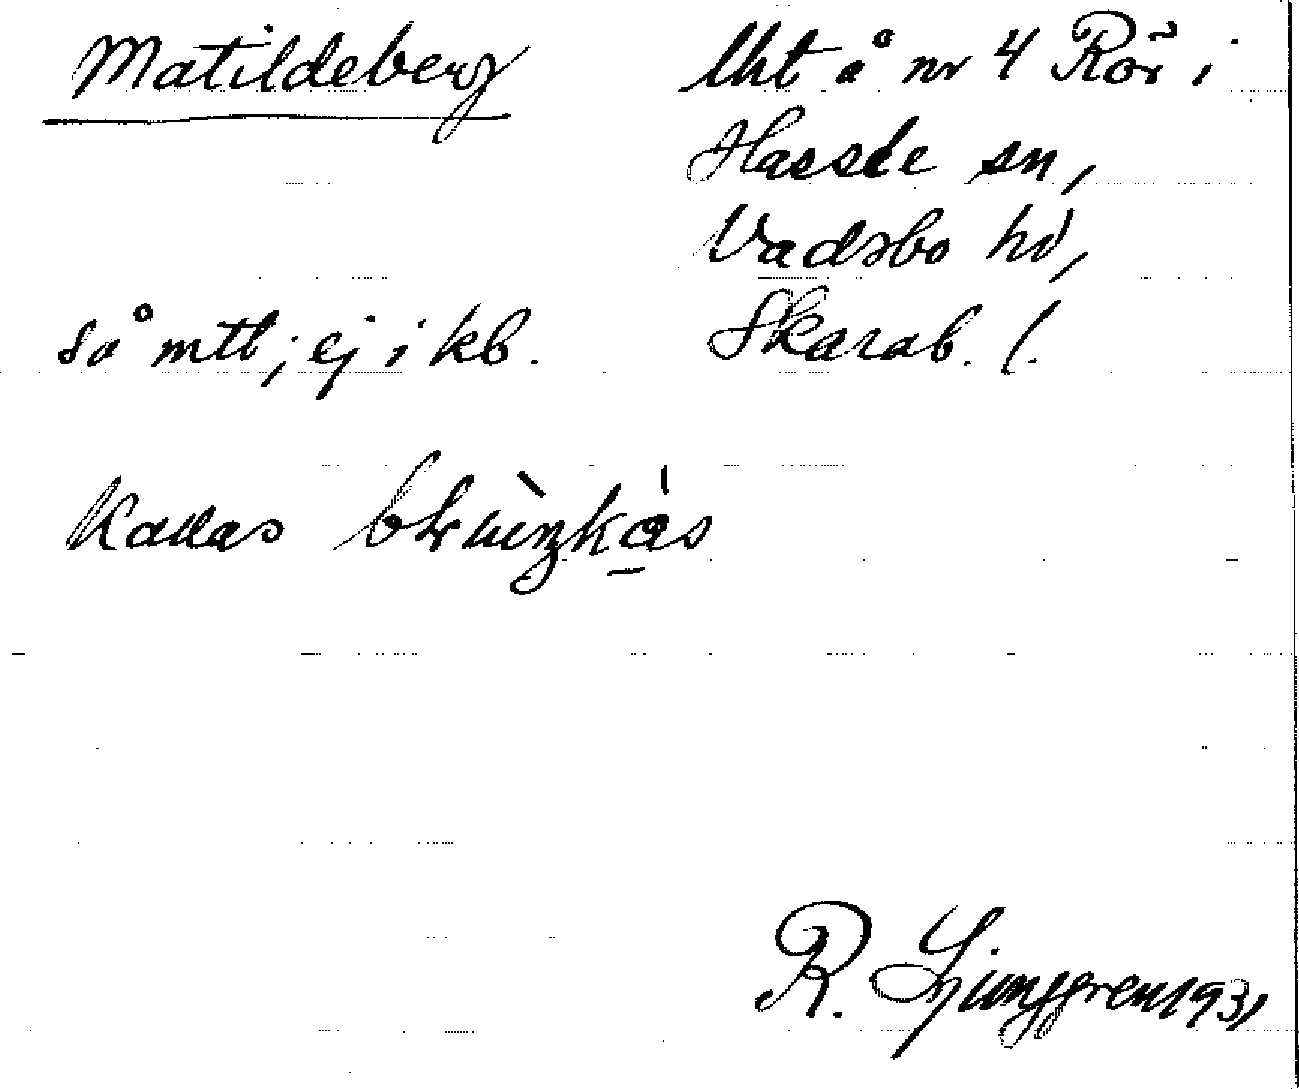 Matildeberg
Lht å nr 4 Rör i
Hassle sn,
Vadsbo hd,
Skarab. l.
så mtl; ej i kb.
Kallas
R. Ljunggren 1931